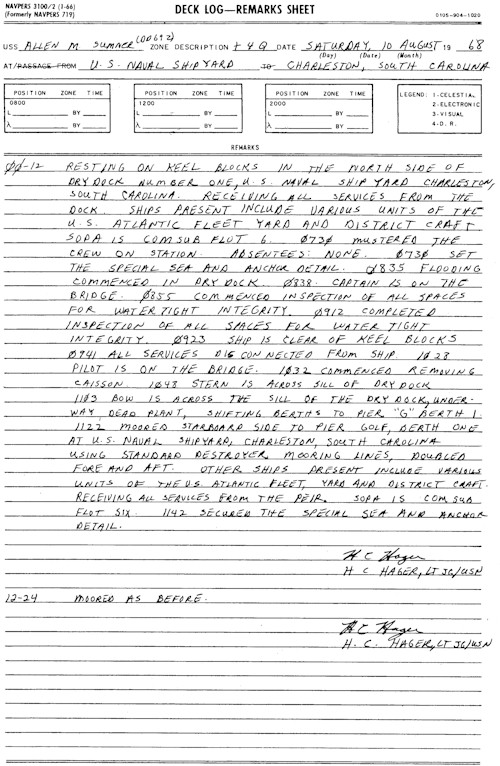 NAVPERS 3100/2 (1-66)
(Formerly NAVPERS 719)
DECK LOG—REMARKS SHEET
0105-904-1020
USS ALLEN M SUMNER (DD692) ZONE DESCRIPTION +4Q DATE SATURDAY, 10 AUGUST 19 68
(Day) (Date) (Month)
AT/PASSAGE FROM U.S. NAVAL SHIPYARD TO CHARLESTON, SOUTH CAROLINA
POSITION ZONE TIME
0800
L BY
λ BY
POSITION ZONE TIME
1200
L BY
λ BY
POSITION ZONE TIME
2000
L BY
λ BY
LEGEND: 1-CELESTIAL
2-ELECTRONIC
3-VISUAL
4-D.R.
REMARKS
00-12 RESTING ON KEEL BLOCKS IN THE NORTH SIDE OF
DRY DOCK NUMBER ONE, U.S. NAVAL SHIP YARD CHARLESTON,
SOUTH CAROLINA. RECEIVING ALL SERVICES FROM THE
DOCK. SHIPS PRESENT INCLUDE VARIOUS UNITS OF THE
U.S. ATLANTIC FLEET YARD AND DISTRICT CRAFT
SOPA IS COMSUB FLOT 6. 0730 MUSTERED THE
CREW ON STATION. ABSENTEES: NONE. 0730 SET
THE SPECIAL SEA AND ANCHOR DETAIL. 0835 FLOODING
COMMENCED IN DRY DOCK. 0838. CAPTAIN IS ON THE
BRIDGE. 0855 COMMENCED INSPECTION OF ALL SPACES
FOR WATER TIGHT INTEGRITY. 0912 COMPLETED
INSPECTION OF ALL SPACES FOR WATER TIGHT
INTEGRITY. 0923 SHIP IS CLEAR OF KEEL BLOCKS
0941 ALL SERVICES DISCONNECTED FROM SHIP. 1028
PILOT IS ON THE BRIDGE. 1032 COMMENCED REMOVING
CAISSON. 1048 STERN IS ACROSS SILL OF DRY DOCK
1103 BOW IS ACROSS THE SILL OF THE DRY DOCK, UNDER-
WAY, DEAD PLANT, SHIFTING BERTHS TO PIER "G" BERTH 1.
1122 MOORED STARBOARD SIDE TO PIER GOLF, BERTH ONE
AT U.S. NAVAL SHIPYARD, CHARLESTON, SOUTH CAROLINA
USING STANDARD DESTROYER MOORING LINES, DOUBLED
FORE AND AFT. OTHER SHIPS PRESENT INCLUDE VARIOUS
UNITS OF THE U.S. ATLANTIC FLEET, YARD AND DISTRICT CRAFT.
RECEIVING ALL SERVICES FROM THE PEIR. SOPA IS COM SUB
FLOT SIX. 1142 SECURED THE SPECIAL SEA AND ANCHOR
DETAIL.
H C Hager
H C HAGER, LT JG/USN
12-24 MOORED AS BEFORE.
H C Hager
H. C. HAGER, LT JG/USN